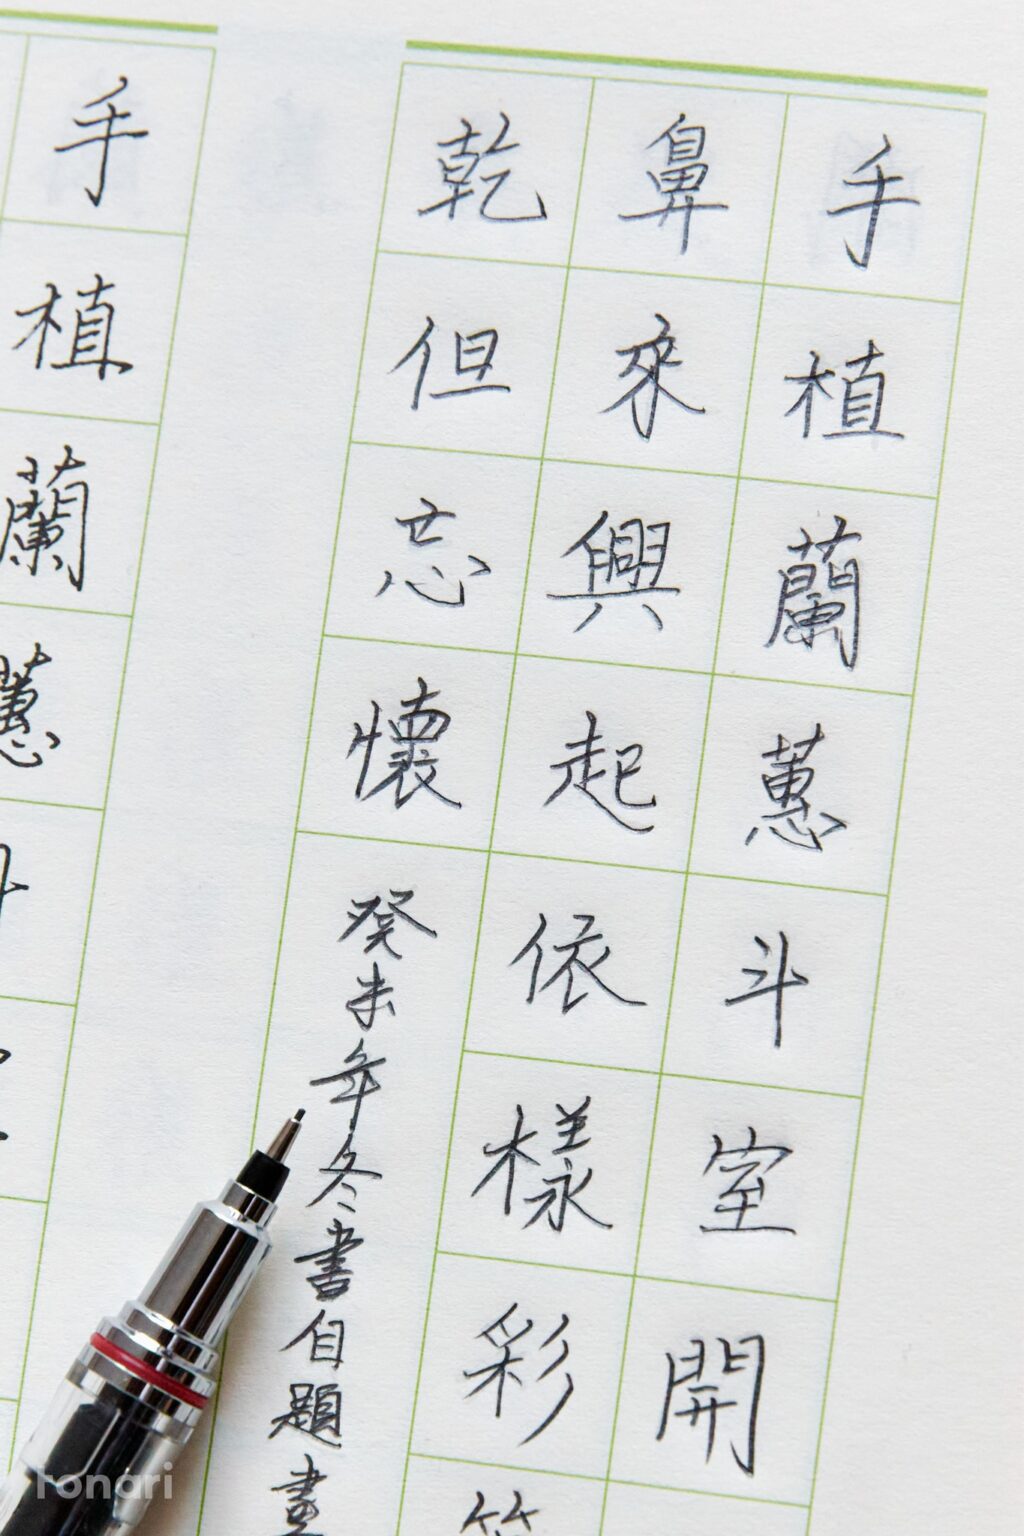 手植蘭蕙斗室開
鼻來興起依樣彩
乾但忘懷
癸未年冬書自題畫
手植蘭蕙
ronari